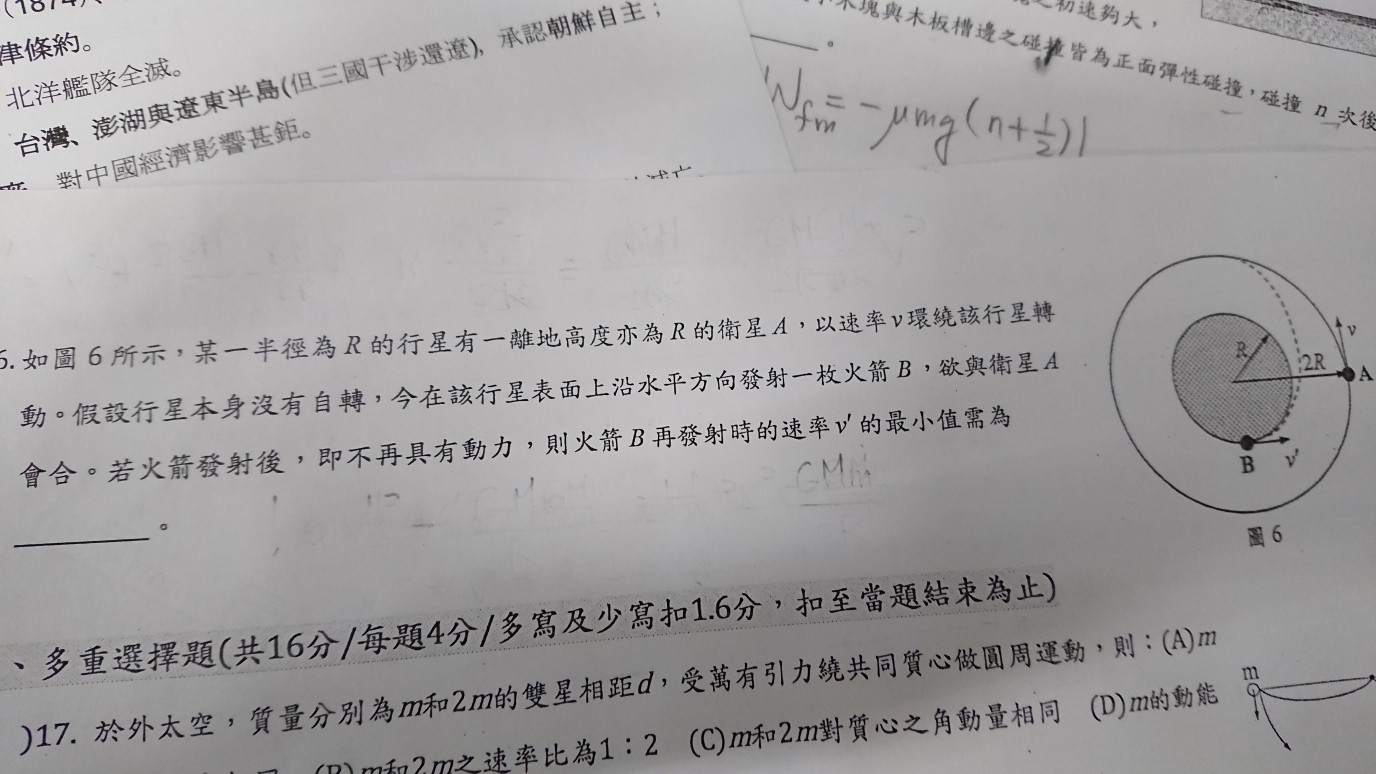 (1874)
津條約。
北洋艦隊全滅。
台灣、澎湖與遼東半島(但三國干涉還遼), 承認朝鮮自主；
對中國經濟影響甚鉅。
初速夠大，
木塊與木板槽邊之碰撞皆為正面彈性碰撞，碰撞 n 次後
。
W_fm = -μmg(n+1/2)l
6. 如圖 6 所示，某一半徑為 R 的行星有一離地高度亦為 R 的衛星 A，以速率 v 環繞該行星轉
動。假設行星本身沒有自轉，今在該行星表面上沿水平方向發射一枚火箭 B，欲與衛星 A
會合。若火箭發射後，即不再具有動力，則火箭 B 再發射時的速率 v' 的最小值需為
______。
R
2R
v
A
B
v'
圖 6
、多重選擇題(共16分/每題4分/多寫及少寫扣1.6分，扣至當題結束為止)
)17. 於外太空，質量分別為m和2m的雙星相距d，受萬有引力繞共同質心做圓周運動，則：(A)m
(B)m和2m之速率比為1：2 (C)m和2m對質心之角動量相同 (D)m的動能
m